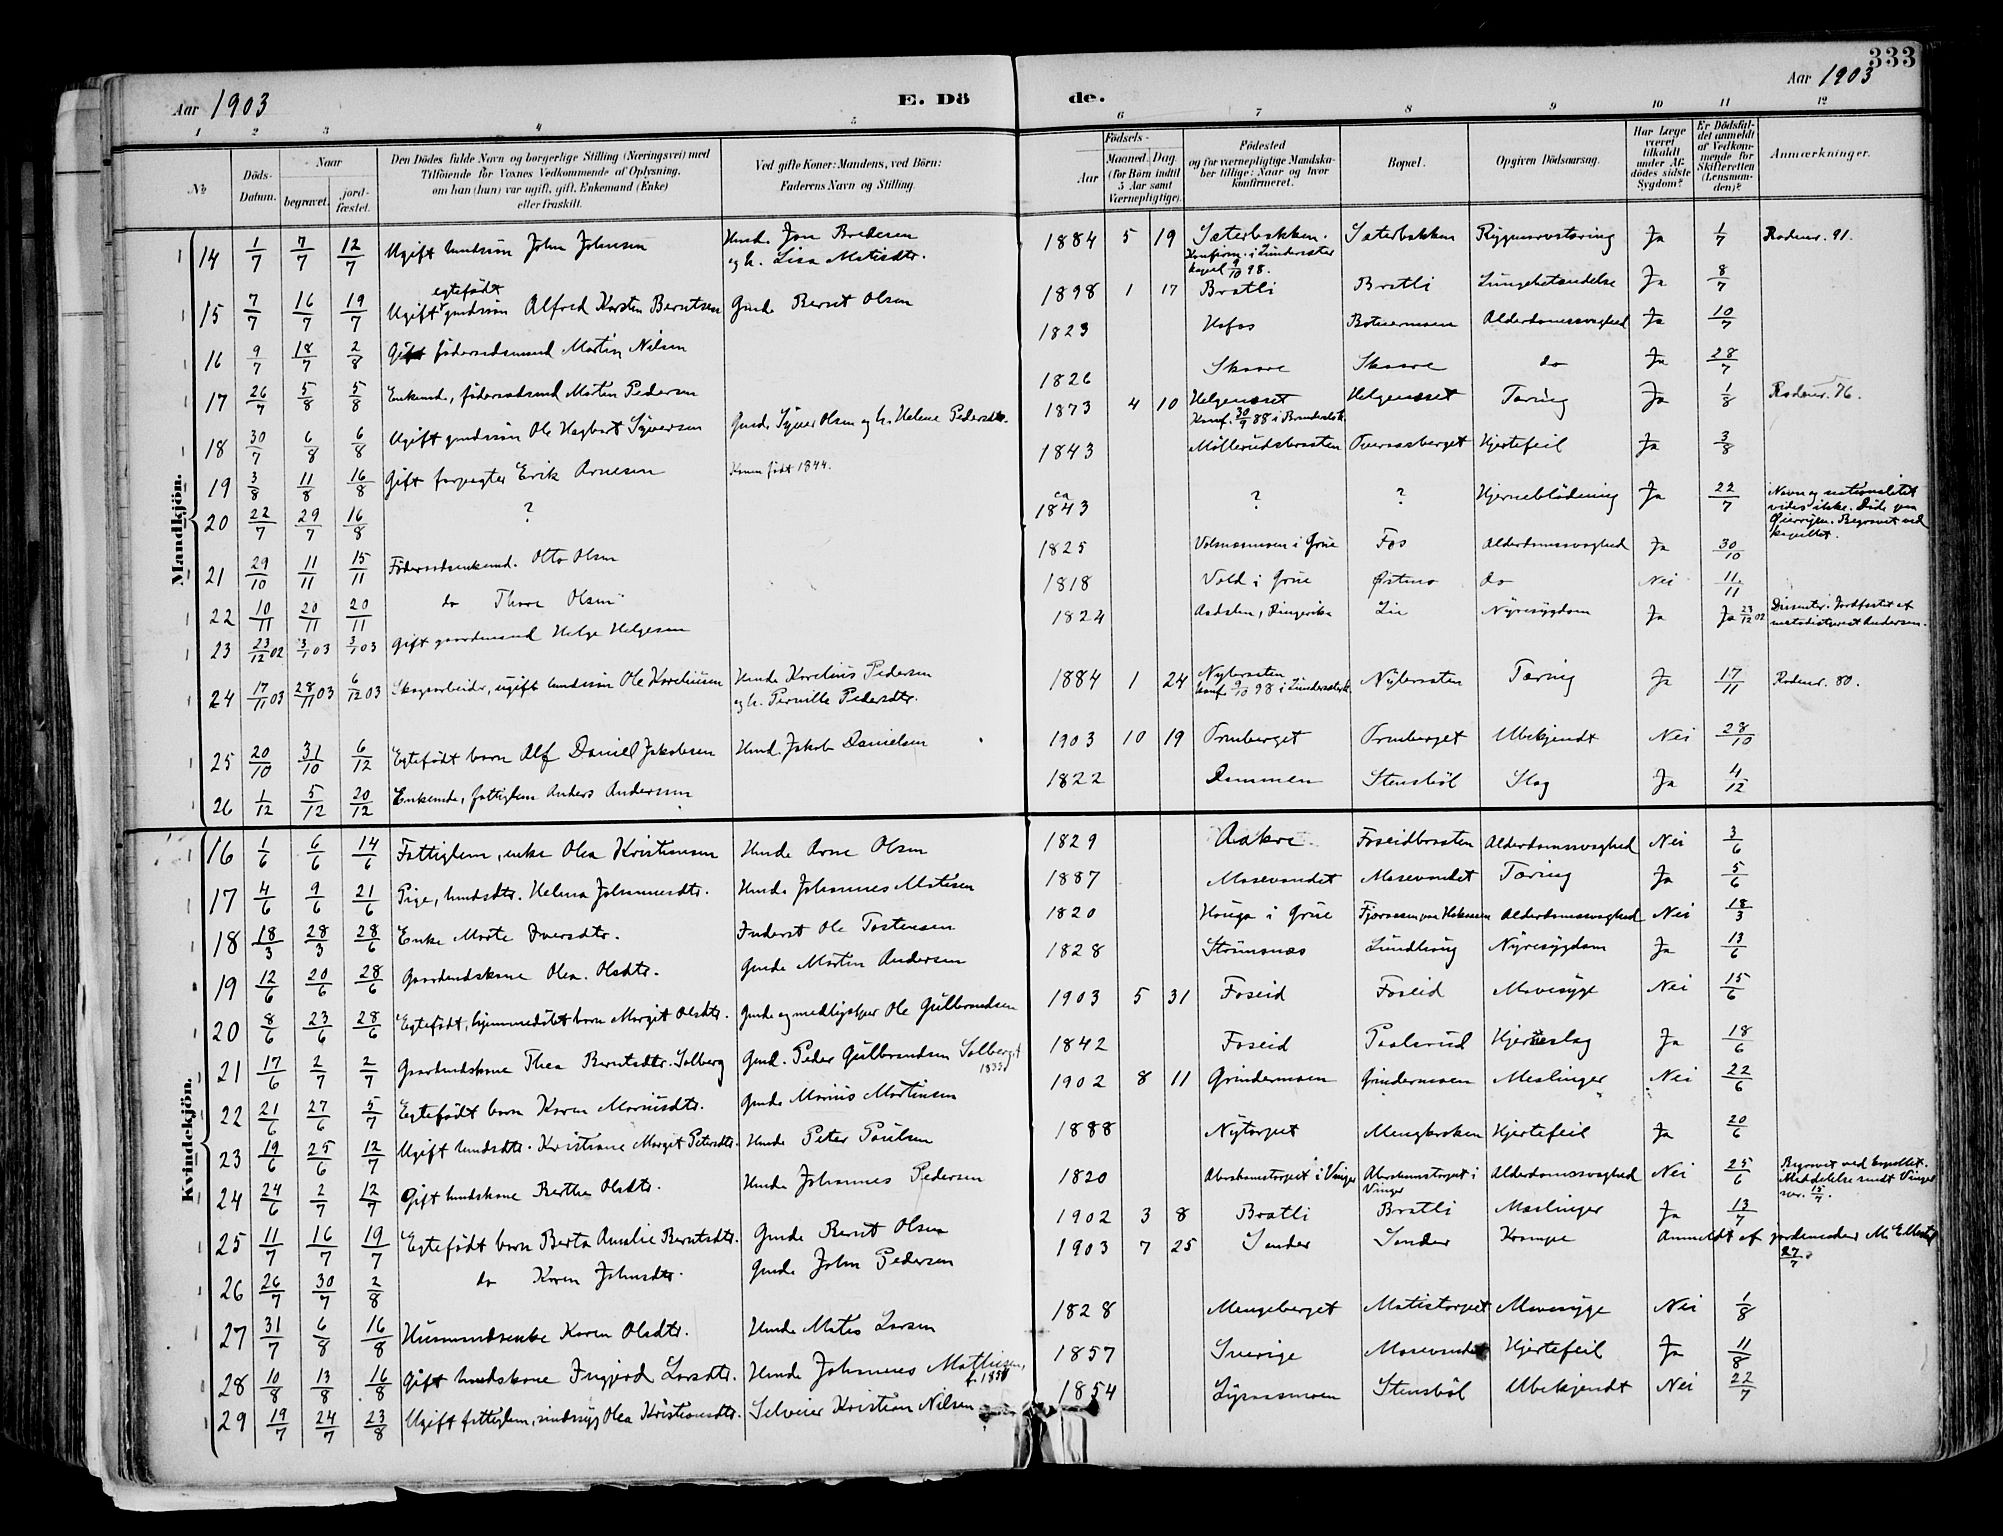 333
Aar 1903
E. Dö
de.
Aar 1903
1 2 3 4 5 6 7 8 9 10 11 12
No
Döds-Datum.
Naar
begravet.
jord-fæstet.
Den Dödes fulde Navn og borgerlige Stilling (Næringsvei) med
Tilföiende for Voxnes Vedkommende af Oplysning,
om han (hun) var ugift, gift, Enkemand (Enke)
eller fraskilt.
Ved gifte Koner: Mandens, ved Börn:
Faderens Navn og Stilling.
Födsels-
Aar
Maaned. Dag.
(for Börn indtil
5 Aar samt
Værnepligtige).
Födested
og for værnepligtige Mandska-
ber tillige: Naar og hvor
konfirmeret.
Bopæl.
Opgiven Dödsaarsag.
Har Læge
været
tilkaldt
under Af-
dödes sidste
Sygdom?
Er Dödsfal-
det anmeldt
af Vedkom-
mende for
Skifteretten
(Lensman-
den)?
Anmærkninger.
Mandkjön.
14 1/7 7/7 12/7 Ugift hmdssön John Johnsen Hmd. Jon Bredesen og h. Lisa Matisdtr. 1884 5 19 Sæterbakken. Konfirm. i Lundersæter kapel 9/10 98. Sæterbakken Rygmarvstæring Ja 1/7 Rodenr. 91.
15 7/7 16/7 19/7 Ugift egtefödt gmdssön Alfred Karsten Berntsen Gmd. Bernt Olsen 1898 1 17 Bratli Bratli Lungebetændelse Ja 8/7
16 9/7 18/7 2/8 Gift föderaadsmand Martin Nilsen 1823 Hofos Alderdomssvaghed Ja 10/7
17 26/7 5/8 5/8 Enkemd, föderaadsmd Martin Pedersen 1826 Skaare Skaare do Ja 28/7
18 30/7 6/8 6/8 Ugift gmdssön Ole Hagbart Syversen Gmd. Syver Olsen og h. Helene Pedersdtr. 1873 4 10 Helgenæset Konf. 30/9 88 i Helgenæset Tæring Ja 1/8 Rodenr. 76.
19 3/8 11/8 16/8 Gift forpagter Erik Arnesen Konen født 1844. 1843 Møllerudsbraaten Overaasberget Hjertefeil Ja 3/8
20 22/7 29/7 16/8 ? ca 1843 ? ? Hjerneblödning Ja 22/7 Navn og nationalitet vides ikke. Döde paa Begravet ved kapellet.
21 29/10 11/11 15/11 Föderaadsenkemd. Otto Olsen 1825 i Grue Fos Alderdomssvaghed Ja 30/10
22 10/11 20/11 20/11 do Thore Olsen 1818 Vold i Grue Østmo do Nei 11/11
23 23/12 02 3/1 03 3/1 03 Gift gaardmand Helge Helgesen 1824 Aadalen, Ringerike Lie Nyresygdom Ja Ja 23/12 02 Dissenter. Jordfæstet af metodistprest Andersen.
24 17/11 03 28/11 03 6/12 03 Skogsarbeider, ugift hmdssön Ole Korneliusen Hmd. Kornelius Pedersen og h. Pernille Pedersdtr. 1884 1 24 Nybraaten konf. 9/10 98 i Lundersæter k. Nybraaten Tæring Ja 17/11 Rodenr. 80.
25 20/10 31/10 6/12 Egtefödt barn Alf Daniel Jakobsen Hmd. Jakob Danielsen 1903 10 19 Ormberget Ormberget Ubekjendt Nei 28/10
26 1/12 5/12 20/12 Enkemd, fattiglem Anders Andersen 1822 Dammen Stensböl Slag Ja 4/12
Kvindekjön.
16 1/6 6/6 14/6 Fattiglem, enke Olea Kristiansen Hmd. Arne Olsen 1829 Aakre Foseidbraaten Alderdomssvaghed Nei 3/6
17 4/6 9/6 21/6 Pige, hmdsdtr. Helena Johannesdtr. Hmd. Johannes Matisen 1887 Masevandet Masevandet Tæring Ja 5/6
18 18/3 28/3 28/6 Enke Marte Iversdtr. Inderst Ole Tostensen 1820 Houga i Grue Alderdomssvaghed Nei 18/3
19 12/6 20/6 28/6 Gaardmdskone Olea Olsdtr. Gmd. Martin Andersen 1828 Strömsnæs Lundhaug Nyresygdom Ja 13/6
20 8/6 23/6 28/6 Egtefödt, hjemmedöbt barn Margit Olsdtr. Gmd. og medhjælper Ole Gulbrandsen 1903 5 31 Foseid Foseid Mavesyge Nei 15/6
21 17/6 2/7 2/7 Gaardmdskone Thea Berntsdtr. Solberg Gmd. Peder Gulbrandsen Solberget 1833 1842 Foseid Paalsrud Hjerneslag Ja 18/6
22 21/6 27/6 5/7 Egtefödt barn Karen Mariusdtr. Gmd. Marius Martinsen 1902 8 11 Grindermoen Grindermoen Meslinger Nei 22/6
23 19/6 25/6 12/7 Ugift hmdsdtr. Kristiane Margit Petersdtr. Hmd. Peter Paulsen 1888 Nytorpet Mengkroken Hjertefeil Ja 20/6
24 24/6 2/7 12/7 Gift hmdskone Berthe Olsdtr. Hmd. Johannes Pedersen 1820 Abrahamstorpet i Vinger Abrahamstorpet i Vinger Alderdomssvaghed Nei 25/6 Begravet ved kapellet. Meddelelse sendt Vinger 15/7.
25 11/7 16/7 19/7 Egtefödt barn Berta Amalie Berntsdtr. Gmd. Bernt Olsen 1902 3 8 Bratli Bratli Meslinger Ja 13/7
26 26/7 30/7 2/8 do Karen Johnsdtr. Gmd. John Pedersen 1903 7 25 Sander Sander Krampe Anmeldt af jordemoder M. 27/7.
27 31/7 6/8 16/8 Husmandsenke Karen Olsdtr. Hmd. Mates Larsen 1828 Mengeberget Matistorpet Mavesyge Nei 1/8
28 10/8 13/8 16/8 Gift hmdskone Ingjerd Larsdtr. Hmd. Johannes Mathisen, 1857 Sverige Masevandet Hjertefeil Ja 11/8
29 19/7 24/7 23/8 Ugift fattiglem, sindssyg Olea Kristiansdtr. Selveier Kristian Nilsen 1854 Stensböl Ubekjendt Nei 22/7